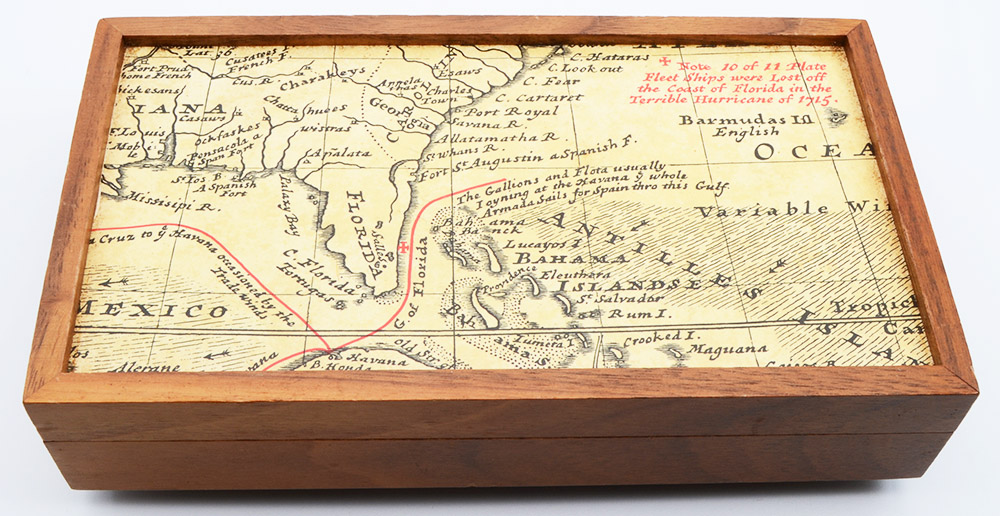 Lat. 26
Cusatees
French F.
Fort Prud
home French
Cus. R
Charakeys
Esaws
Charles
Town
C. Hataras
C. Look out
C. Fear
C. Cartaret
✠ Note 10 of 11 Plate
Fleet Ships were Lost off
the Coast of Florida in the
Terrible Hurricane of 1715.
ckesans
IANA
Casaws
Chattahuces
Georgia
CAR
Port Royal
Savana R.
Alatamatha R.
St Whans R.
Fort St Augustin a Spanish F.
Barmudas Isl
English
OCEA
F. Louis
Mobile
Ockfaskes
wistras
Pensacola
Span Fort
Apalata
St Ios B
A Spanish
Fort
Missisipi R.
Palaxy Bay
FLORIDA
C. Florida
Tortugas
G. of Florida
The Gallions and Flota usually
Joyning at the Havana ye whole
Armada Sails for Spain thro this Gulf.
Variable Wi
a Cruz to ye Havana occasioned by the
Trade Winds
Bahama
Banck
ANTILLES
Lucayos I
BAHAMA
Providence
Eleuthara
ISLANDS
St Salvador
or Rum I.
Tropick
Can
ISLAN
MEXICO
Bahamas
Tumera I
Crooked I.
Maguana
Old Str
vana
Havana
B. Honda
Alerane